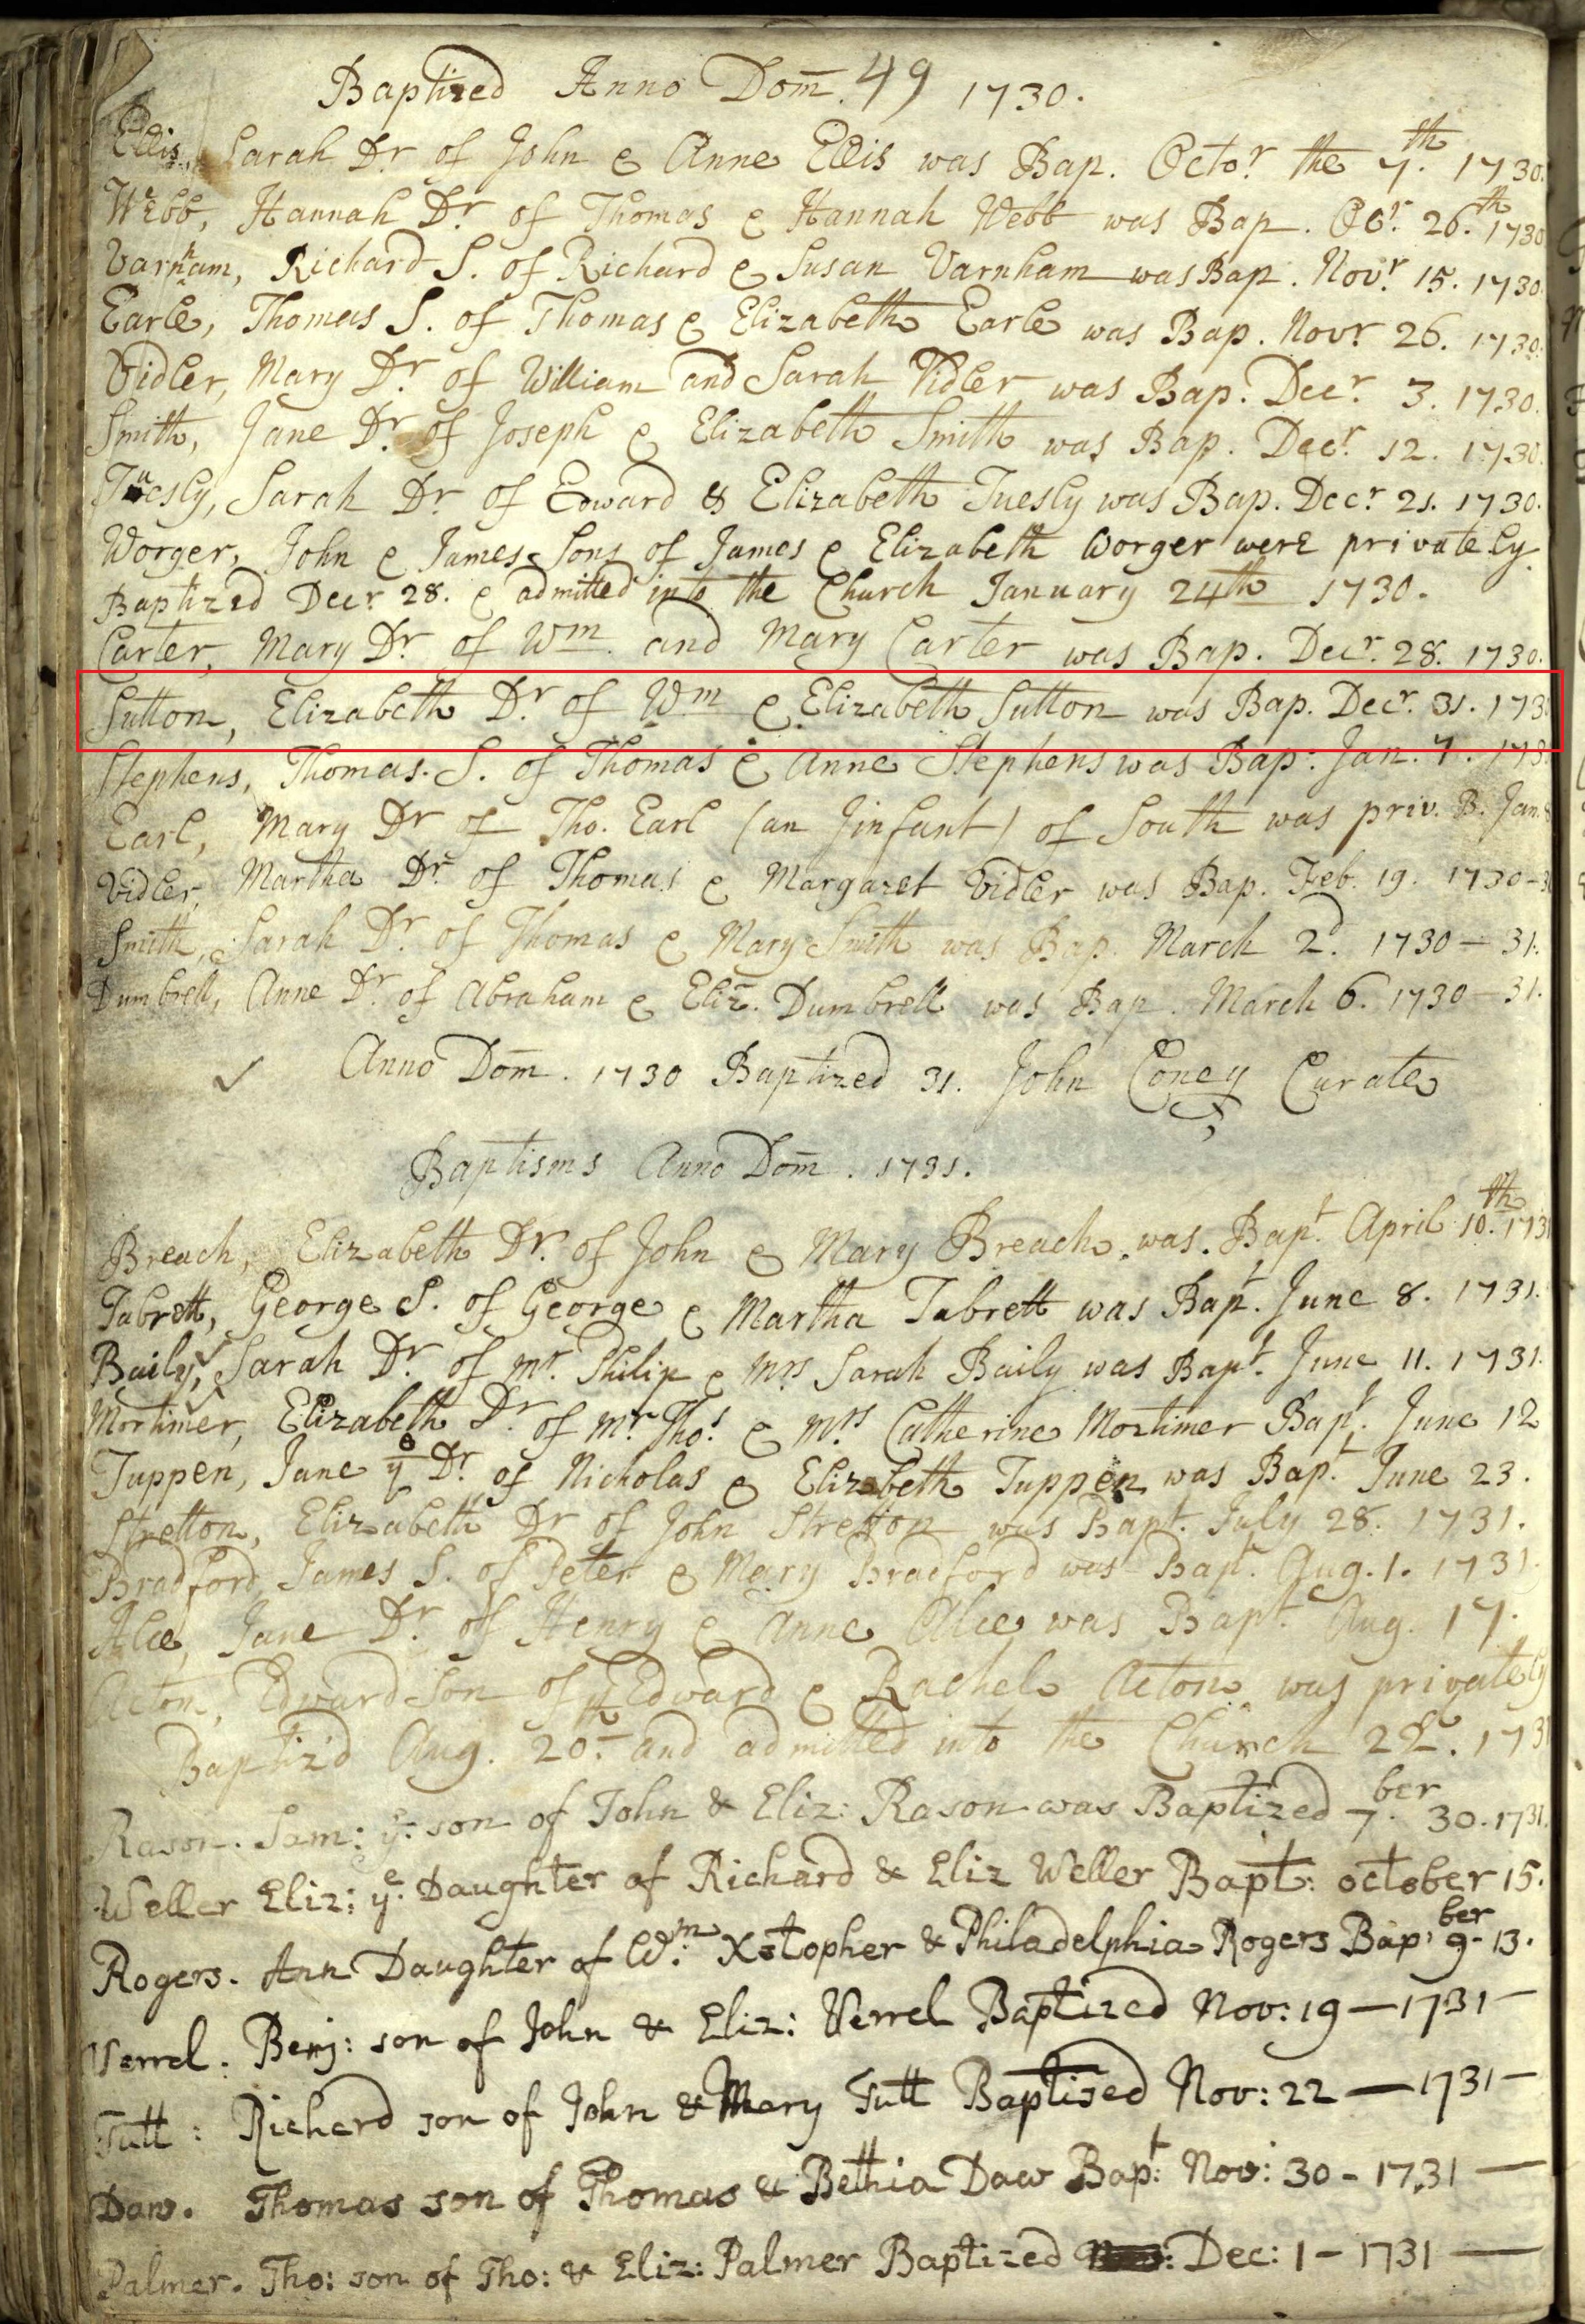 Baptized Anno Dom̄. 49 1730.
Ellis, Sarah Dr of John & Anne Ellis was Bap. Octor. the 7th. 1730.
Webb, Hannah Dr. of Thomas & Hannah Webb was Bap. Ocr. 26.th 1730
Varnham, Richard S. of Richard & Susan Varnham was Bap. Novr. 15. 1730.
Earle, Thomas S. of Thomas & Elizabeth Earle was Bap. Novr. 26. 1730.
Vidler, Mary Dr. of William and Sarah Vidler was Bap. Decr. 3. 1730.
Smith, Jane Dr. of Joseph & Elizabeth Smith was Bap. Decr. 12. 1730.
Tuesly, Sarah Dr. of Edward & Elizabeth Tuesly was Bap. Decr. 21. 1730.
Worger, John & James Sons of James & Elizabeth Worger were privately
Baptized Decr. 28. & admitted into the Church January 24th 1730.
Carter, Mary Dr. of Wm. and Mary Carter was Bap. Decr. 28. 1730.
Sutton, Elizabeth Dr of Wm & Elizabeth Sutton was Bap. Decr. 31. 173
Stephens, Thomas. S. of Thomas & Anne Stephens was Bap: Jan. 7. 173
Earl, Mary Dr of Tho. Earl (an Jinfant) of South was priv. B. Jan.
Vidler, Martha Dr. of Thomas & Margaret Vidler was Bap. Feb. 19. 1730-3
Smith, Sarah Dr. of Thomas & Mary Smith was Bap. March 2d. 1730-31.
Dumbrell, Anne Dr. of Abraham & Eliz. Dumbrell was Bap. March 6. 1730-31.
✓ Anno Dom̄. 1730 Baptized 31. John Coney Curate
Baptisms Anno Dom̄. 1731.
Breach, Elizabeth Dr. of John & Mary Breach. was. Bapt. April 10.th 1731
Tabrett, George S. of George & Martha Tabrett was Bapt. June 8. 1731.
Baily, Sarah Dr. of Mr. Philip & Mrs Sarah Baily was Bapt. June 11. 1731.
Mortimer, Elizabeth Dr. of Mr. Thos. & Mrs Catherine Mortimer Bapt. June 12
Tuppen, Jane ye Dr. of Nicholas & Elizabeth Tuppen was Bapt. June 23.
Stretton, Elizabeth Dr of John Stretton was Bapt. July 28. 1731.
Bradford, James S. of Peter & Mary Bradford was Bapt. Aug. 1. 1731.
Alce, Jane Dr. of Henry & Anne Alce was Bapt. Aug. 17.
Acton, Edward Son of Edward & Rachel Acton was privately
Baptiz'd Aug. 20th and admitted into the Church 22. 173
Rason. Sam: ye. son of John & Eliz: Rason was Baptized 7.ber 30. 1731.
Weller Eliz: ye. Daughter of Richard & Eliz Weller Bapt: october 15.
Rogers. Ann Daughter of Wm. Xstopher & Philadelphia Rogers Bap: 9.ber 13.
Verrel. Benj: son of John & Eliz: Verrel Baptized Nov: 19 — 1731 —
Tutt: Richard son of John & Mary Tutt Baptised Nov: 22 — 1731 —
Daw. Thomas son of Thomas & Bethia Daw Bapt: Nov: 30 - 1731 —
Palmer. Tho: son of Tho: & Eliz: Palmer Baptized Dec: 1 - 1731 —